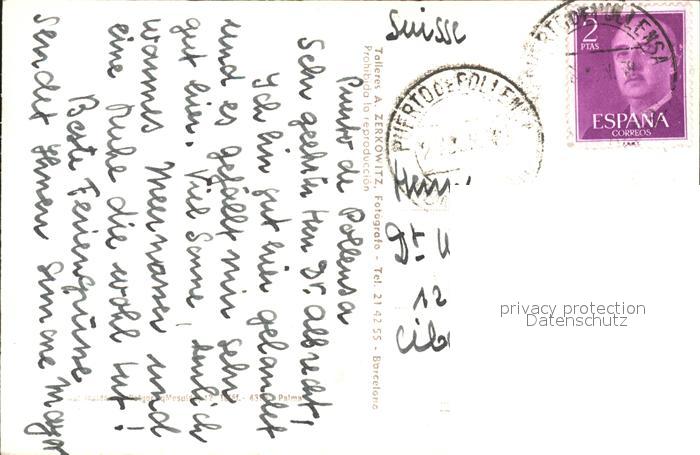 Puerto de Pollensa
Sehr geehrter Herr Dr. Albrecht!
Ich bin gut hier gelandet
und es gefällt mir sehr
gut hier. Viel Sonne,
warmes Meerwasser und
eine Ruhe die wohl tut!
Beste Feriengrüsse
sendet Ihnen Simone Mayer
Talleres A. ZERKOWITZ, Fotógrafo - Tel. 21 42 55 - Barcelona
Prohibida la reproducción
Palma
Suisse
PUERTO DE POLLENSA
PUERTO DE POLLENSA
2
PTAS
ESPAÑA
CORREOS
Herrn
Dr.
12
privacy protection
Datenschutz